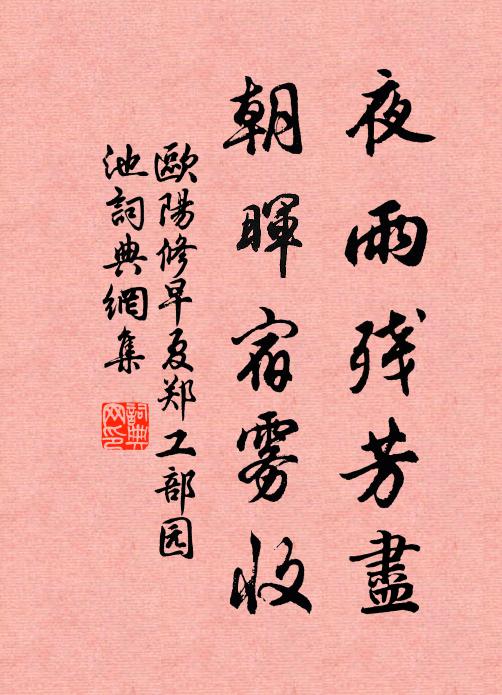 夜雨残芳盡
朝暉宿雾收
歐陽修早夏郑工部园
池詞典網集
詞典网印